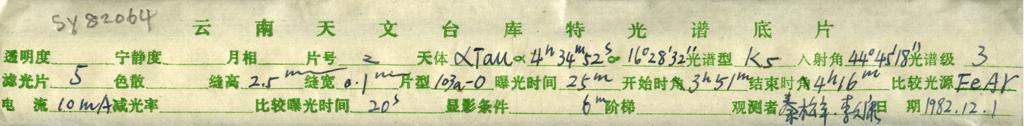 SY82064
云南天文台库特光谱底片
透明度 宁静度 月相 片号 2 天体 αTau α 4h 34m 52s δ 16°28'32" 光谱型 K5 入射角 44°45'18" 光谱级 3
滤光片 5 色散 缝高 2.5mm 缝宽 0.1mm 片型 103a-O 曝光时间 25m 开始时角 3h51m 结束时角 4h16m 比较光源 FeAr
电流 10mA 减光率 比较曝光时间 20s 显影条件 6m 阶梯 观测者 日期 1982.12.1